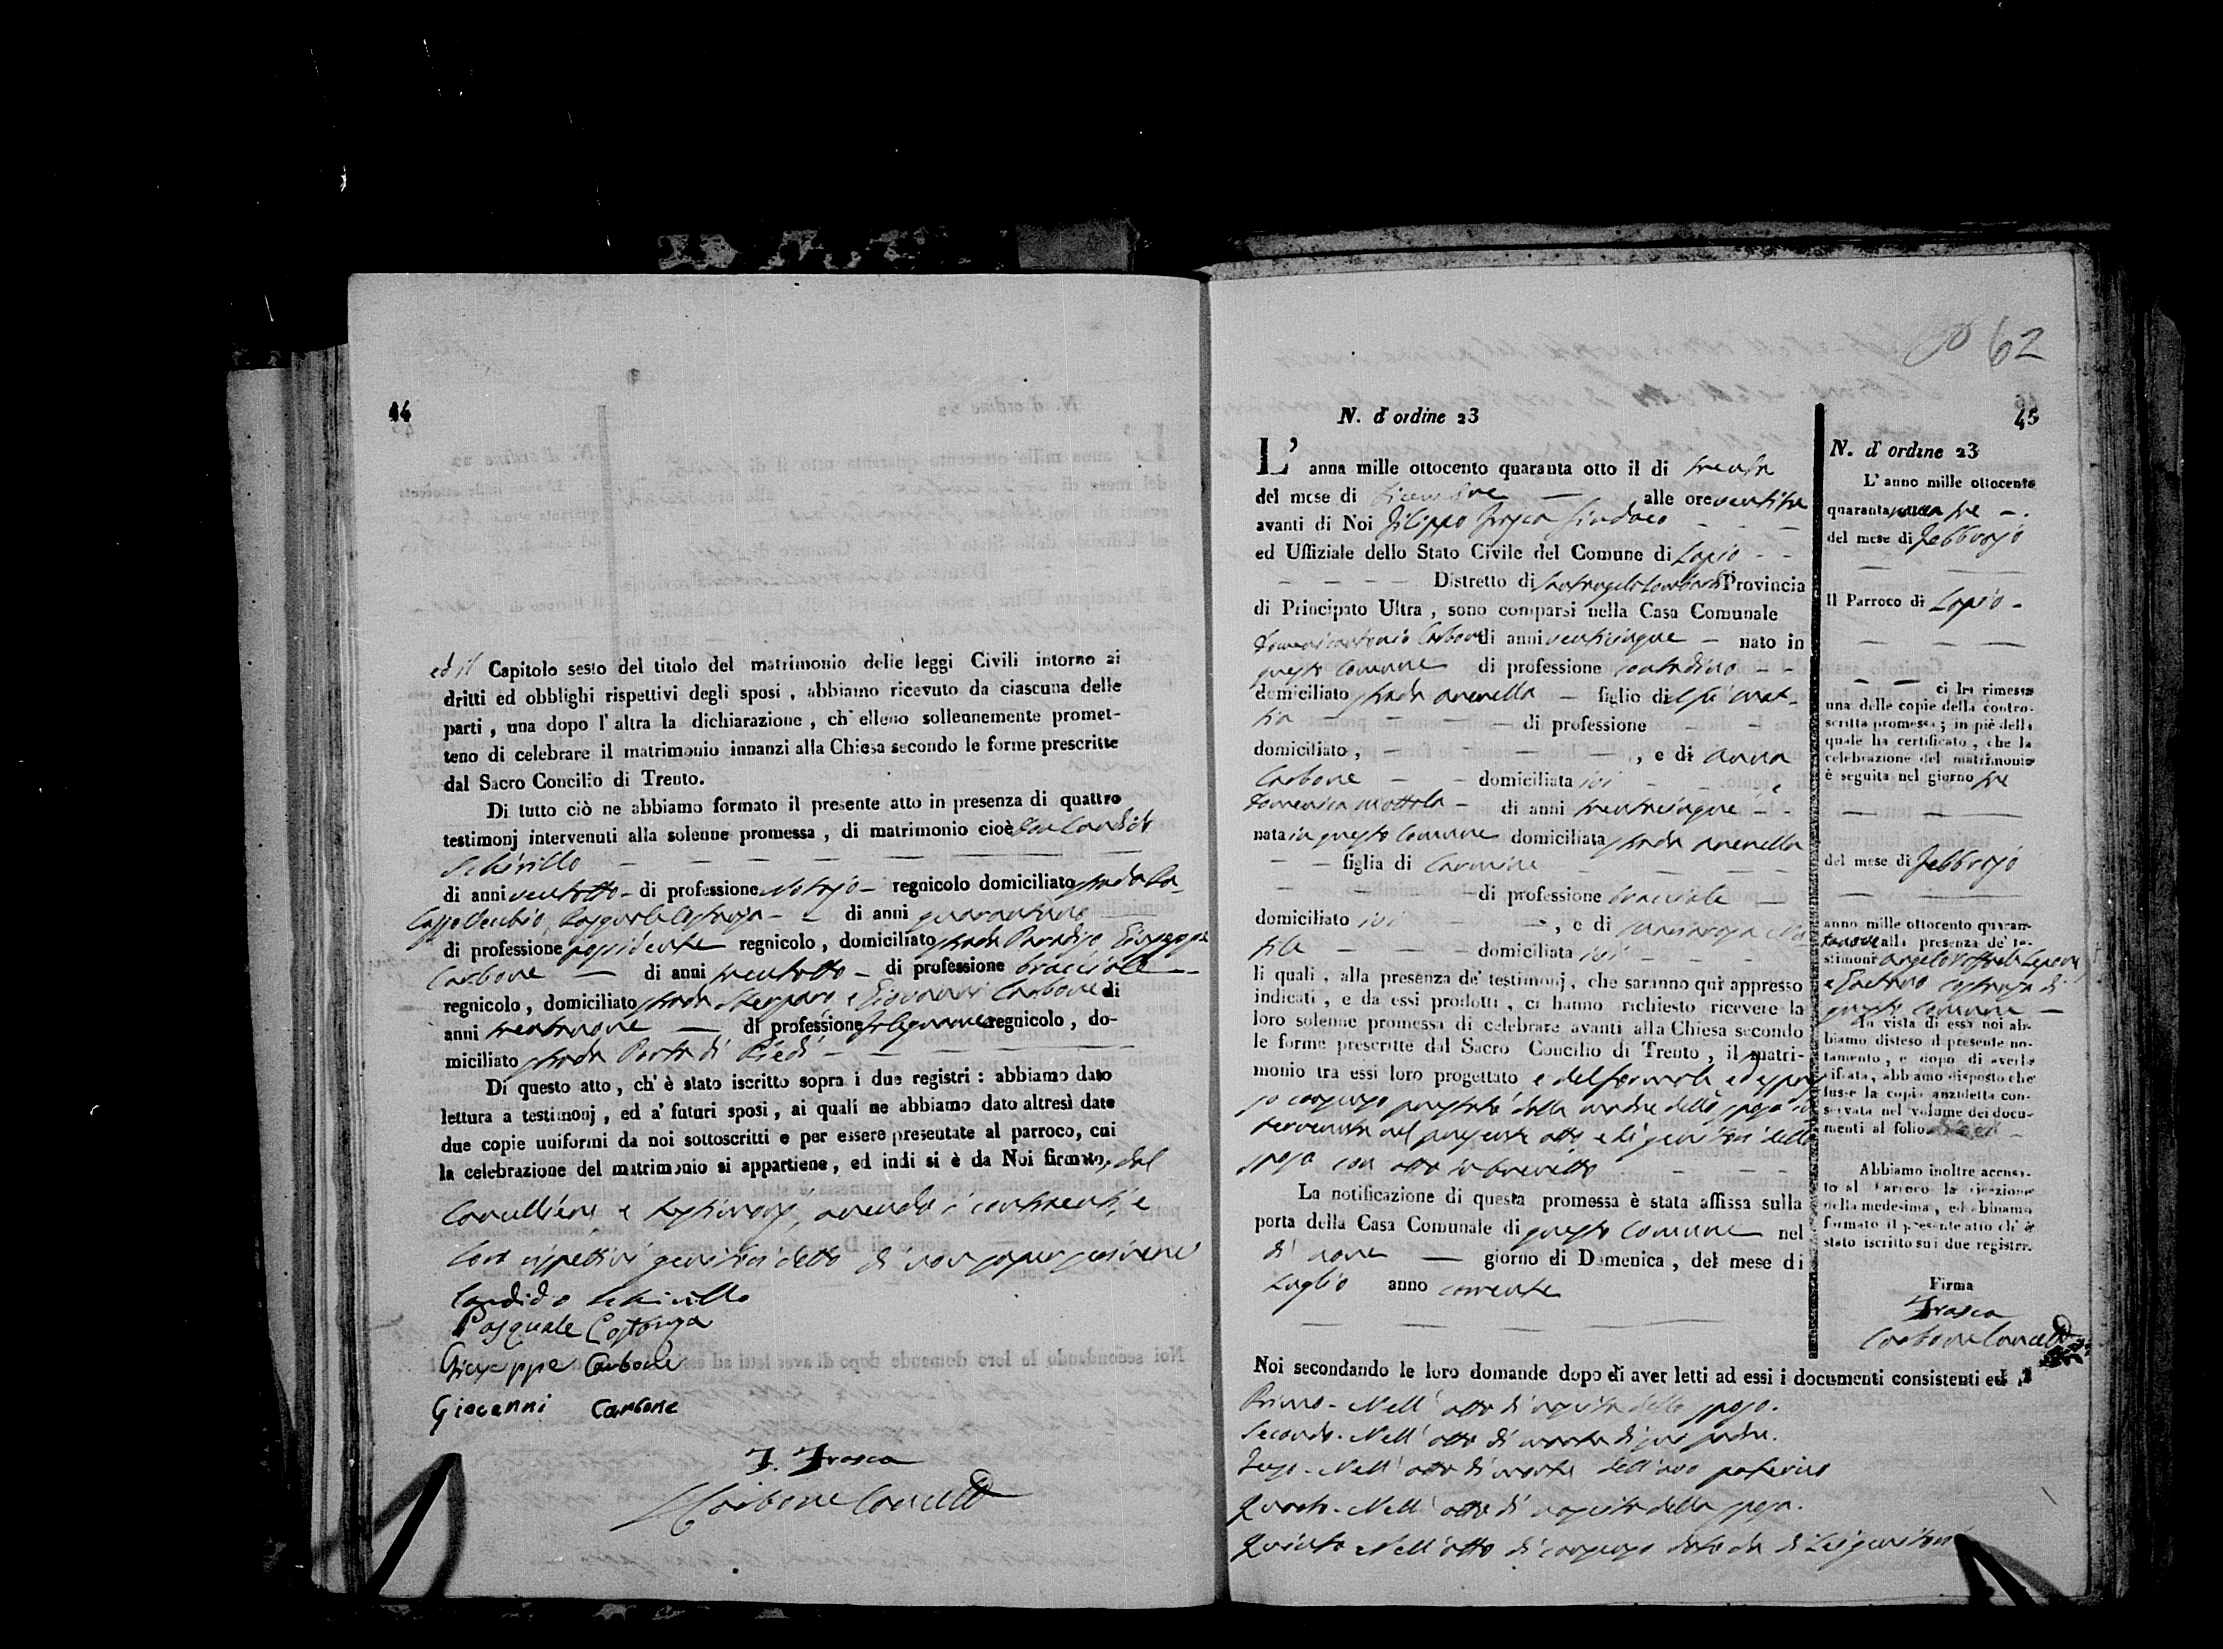 44
ed il Capitolo sesto del titolo del matrimonio delle leggi Civili intorno ai
dritti ed obblighi rispettivi degli sposi , abbiamo ricevuto da ciascuna delle
parti , una dopo l' altra la dichiarazione , ch' elleno sollennemente promet-
teno di celebrare il matrimonio innanzi alla Chiesa secondo le forme prescritte
dal Sacro Concilio di Trento.
Di tutto ciò ne abbiamo formato il presente atto in presenza di quattro
testimonj intervenuti alla solenne promessa , di matrimonio cioè Don Candido
Schirillo
di anni ventotto - di professione Notajo - regnicolo domiciliato strada
di anni quarantuno
di professione possidente regnicolo , domiciliato strada Paradiso, Giuseppe
Carbone — di anni trentotto - di professione bracciale
regnicolo , domiciliato strada e Giovanni Carbone di
anni trentanove — di professione Falegname regnicolo , do-
miciliato strada Porta di Piedi
Di questo atto , ch' è stato iscritto sopra i due registri : abbiamo dato
lettura a testimonj , ed a' futuri sposi , ai quali ne abbiamo dato altresì date
due copie uniformi da noi sottoscritti e per essere presentate al parroco, cui
la celebrazione del matrimonio si appartiene , ed indi si è da Noi firmato, dal
Cancelliere, e testimonj, avendo i contraenti, e
loro rispettivi genitori detto di non saper scrivere
Candido Schirillo
Pasquale Costanza
Giuseppe Carbone
Giovanni Carbone
F. Frasca
Carbone Canc
62
45
N. d' ordine 23
L' anna mille ottocento quaranta otto il di trenta
del mese di Dicembre — alle ore ventitre
avanti di Noi Filippo Frasca Sindaco
ed Uffiziale dello Stato Civile del Comune di Lapio
Distretto di Santangelo Lombardi Provincia
di Principato Ultra , sono comparsi nella Casa Comunale
Domenicantonio Carbone di anni venticinque - nato in
questo Comune di professione contadino
domiciliato strada arenella - figlio del fu Mat-
tia di professione
domiciliato , , e di Anna
Carbone domiciliata ivi , e
Domenica Mottola - di anni trentacinque
nata in questo Comune domiciliata strada arenella
figlia di Carmine
di professione bracciale
domiciliato ivi , e di
domiciliata ivi
li quali , alla presenza de' testimonj , che saranno qui appresso
indicati , e da essi prodotti , ci hanno richiesto ricevere la
loro solenne promessa di celebrare avanti alla Chiesa secondo
le forme prescritte dal Sacro Concilio di Trento , il matri-
monio tra essi loro progettato e del formale ed espres-
so consenso prestato dalla madre dello sposo in
tervenuta nel presente atto, e di genitori della
sposa con atto in brevetto
La notificazione di questa promessa è stata affissa sulla
porta della Casa Comunale di questo Comune nel
dì nove — giorno di Domenica , del mese di
Luglio anno corrente
Noi secondando le loro domande dopo di aver letti ad essi i documenti consistenti ed
Primo - Nell' atto di nascita dello sposo.
Secondo - Nell' atto di morte di suo padre.
Terzo - Nell' atto di morte dell' avo paterno
Quarto - Nell' atto di nascita della sposa.
Quinto Nell' atto di consenso dato da di Lei genitori
N. d' ordine 23
L' anno mille ottocento
quaranta nove tre
del mese di Febbrajo
Il Parroco di Lapio
ci ha rimessa
una delle copie della contro-
scritta promessa ; in piè della
quale ha certificato , che la
celebrazione del matrimonio
è seguita nel giorno tre
del mese di Febbrajo
anno mille ottocento quaran-
tanove alla presenza de' te-
stimoni Angelo Raffaele Lepore
e Gaetano Costanza di
questo Comune
In vista di essa noi ab-
biamo disteso il presente no-
tamento , e dopo di averla
cifrata , abbiamo disposto che
fusse la copia anzidetta con-
servata nel volume dei docu-
menti al folio
Abbiamo inoltre accusa-
to al Parroco la ricezione
della medesima , ed abbiamo
formato il presente atto ch' è
stato iscritto sui due registri.
Firma
Frasca
Carbone Canc